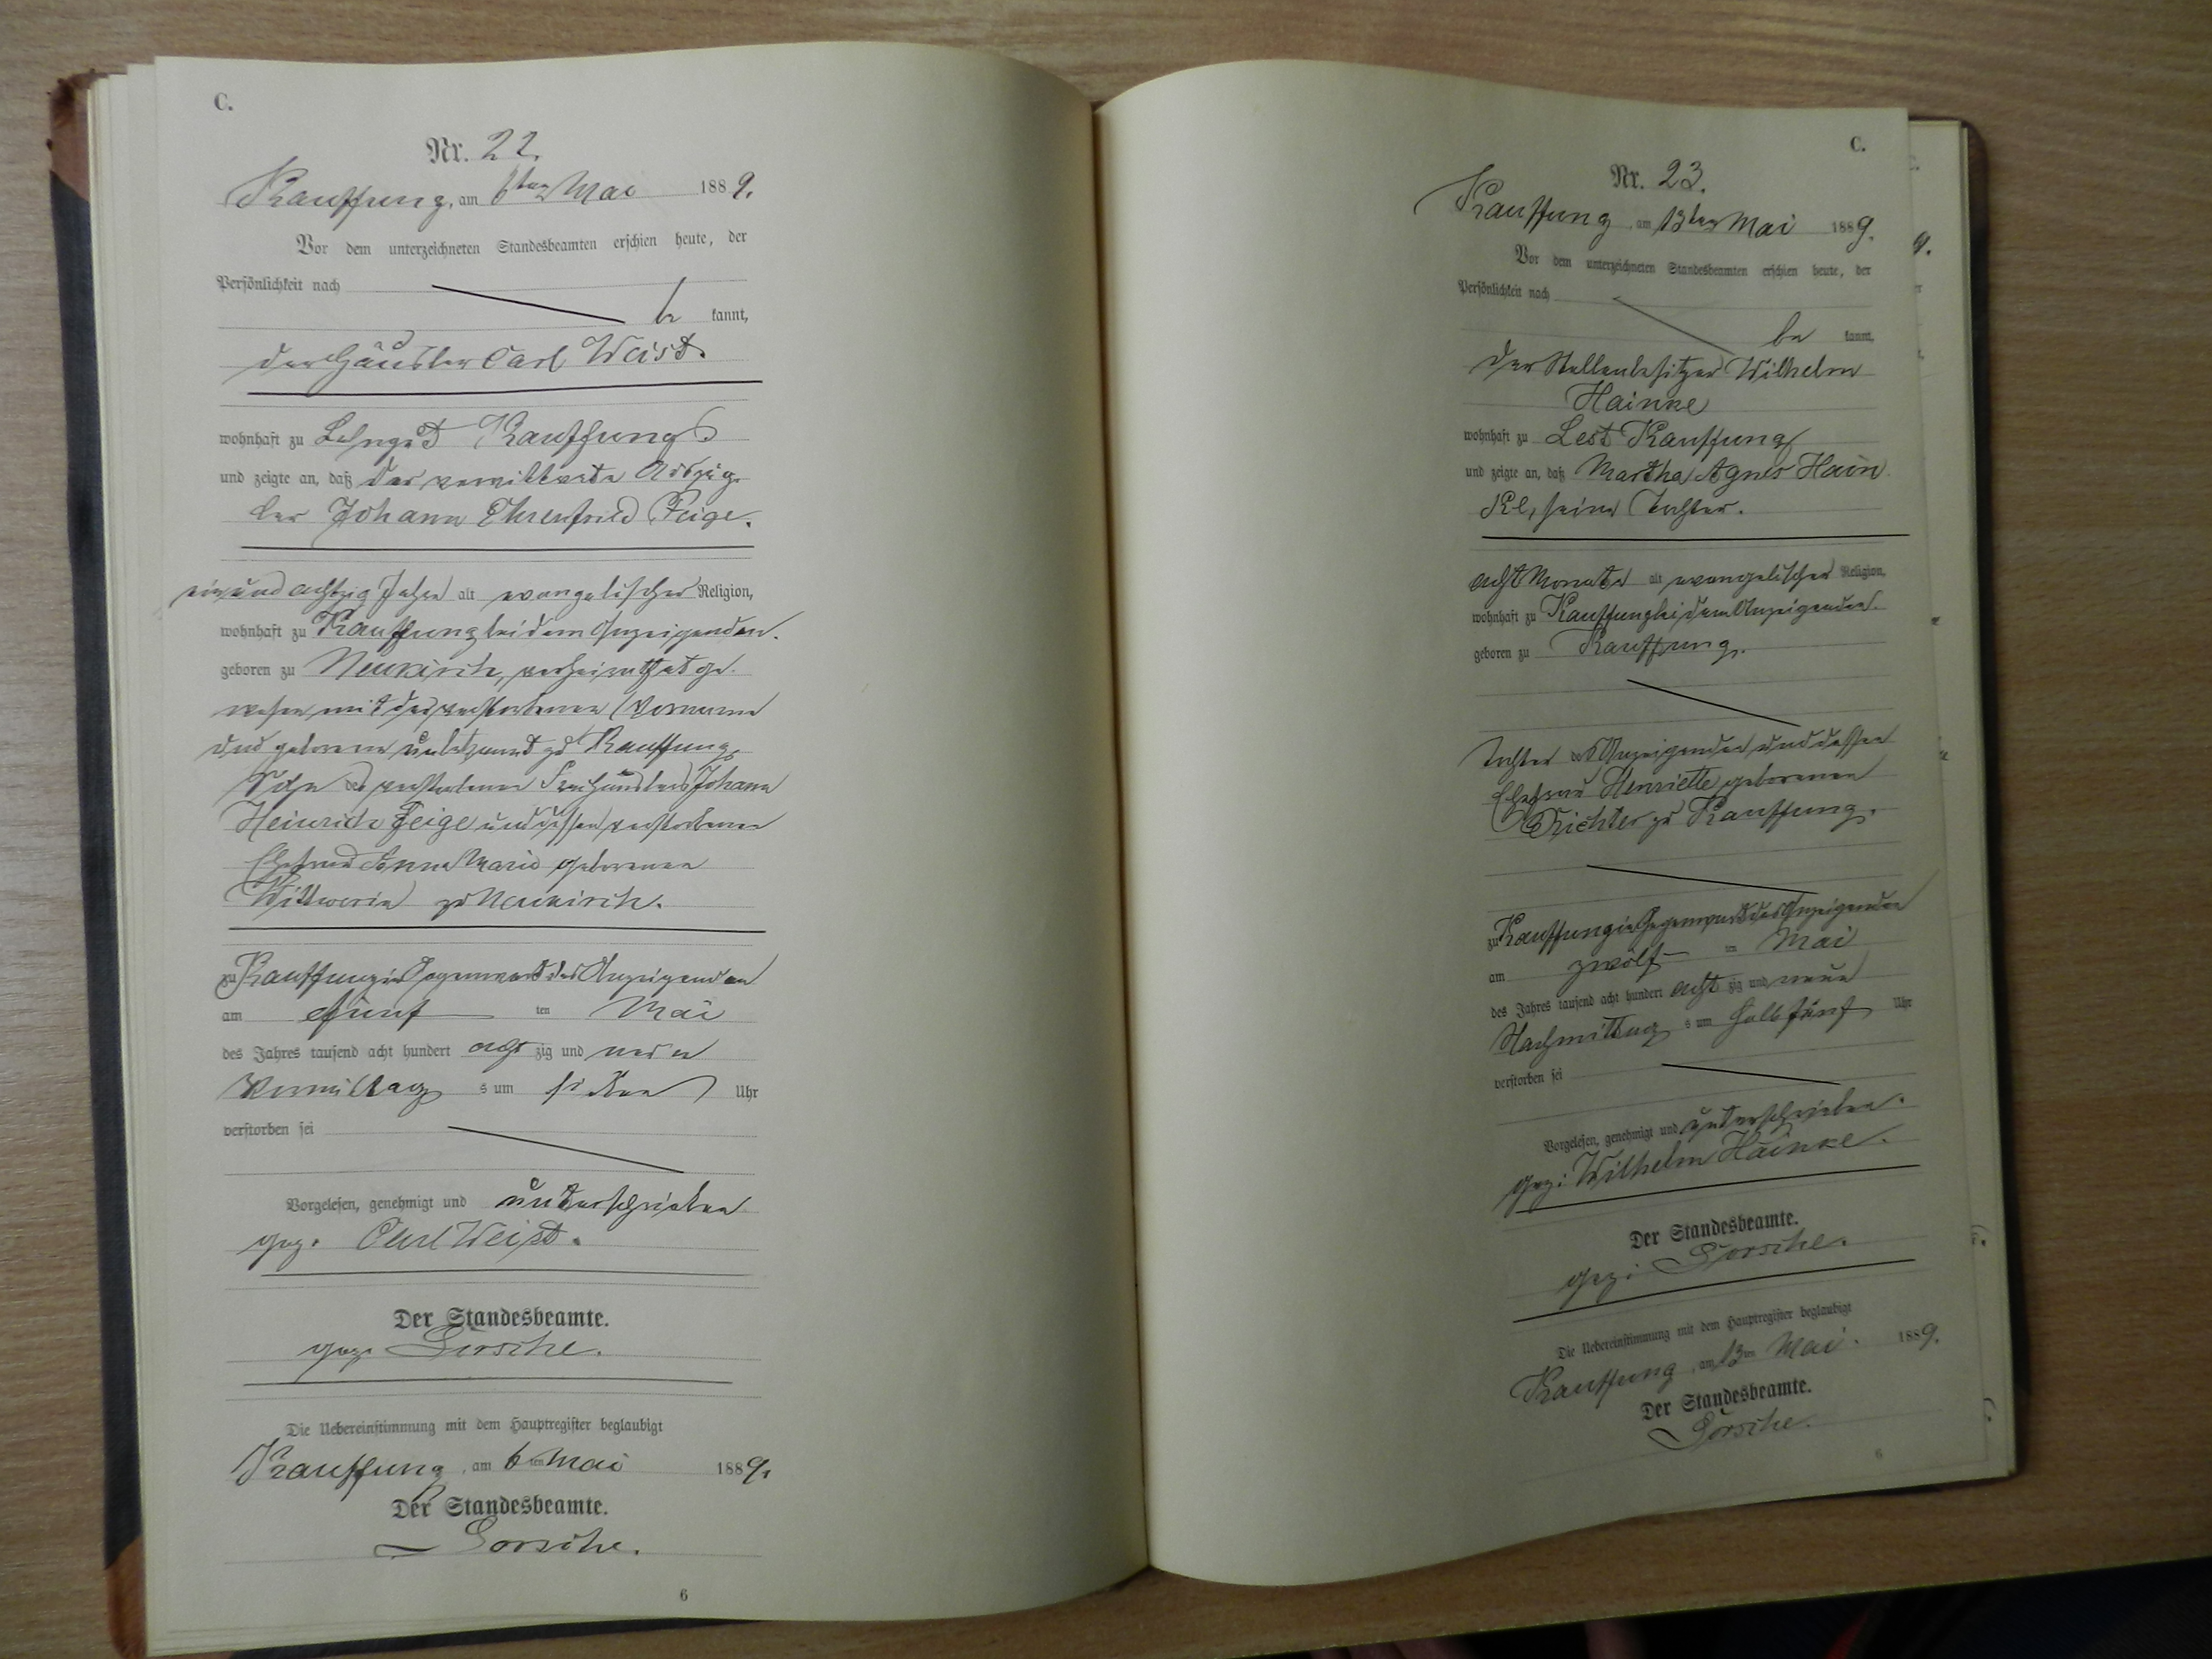 C.
Nr. 22.
Kauffung, am 6ten Mai 1889.
Vor dem unterzeichneten Standesbeamten erschien heute, der
Persönlichkeit nach
be kannt,
der Häusler Carl Weist.
wohnhaft zu Lehngut Kauffung
und zeigte an, daß der verwittwete Auszüg-
ler Johann Ehrenfried Feige.
ein und achtzig Jahre alt evangelischer Religion,
wohnhaft zu Kauffung bei dem Anzeigenden.
geboren zu Neukirch, verheirathet ge-
wesen mit der verstorbenen (Vorname
und geborene unbekannt zu Kauffung,
Sohn des verstorbenen Freihäuslers Johann
Heinrich Feige und dessen verstorbenen
Ehefrau Anna Maria geborenen
zu Neukirch.
zu Kauffung in Gegenwart des Anzeigenden
am fünf ten Mai
des Jahres tausend acht hundert acht zig und neun
Vormittag s um sieben Uhr
verstorben sei
Vorgelesen, genehmigt und unterschrieben
gez. Carl Weist.
Der Standesbeamte.
gez.
Die Uebereinstimmung mit dem Hauptregister beglaubigt
Kauffung, am 6ten Mai 1889.
Der Standesbeamte.
6
C.
Nr. 23.
Kauffung, am 13ten Mai 1889.
Vor dem unterzeichneten Standesbeamten erschien heute, der
Persönlichkeit nach
be kannt,
der Stellenbesitzer Wilhelm
Hainke
wohnhaft zu Lest Kauffung
und zeigte an, daß Martha Agnes Hain
ke, seine Tochter.
acht Monate alt evangelischer Religion,
wohnhaft zu Kauffung bei dem Anzeigenden.
geboren zu Kauffung.
Tochter des Anzeigenden und dessen
Ehefrau Henriette geborenen
Richter zu Kauffung.
zu Kauffung in Gegenwart des Anzeigenden
am zwölf ten Mai
des Jahres tausend acht hundert acht zig und neun
Nachmittag s um halb fünf Uhr
verstorben sei
Vorgelesen, genehmigt und unterschrieben.
gez: Wilhelm Hainke.
Der Standesbeamte.
gez:
Die Uebereinstimmung mit dem Hauptregister beglaubigt
Kauffung, am 13ten Mai. 1889.
Der Standesbeamte.
6